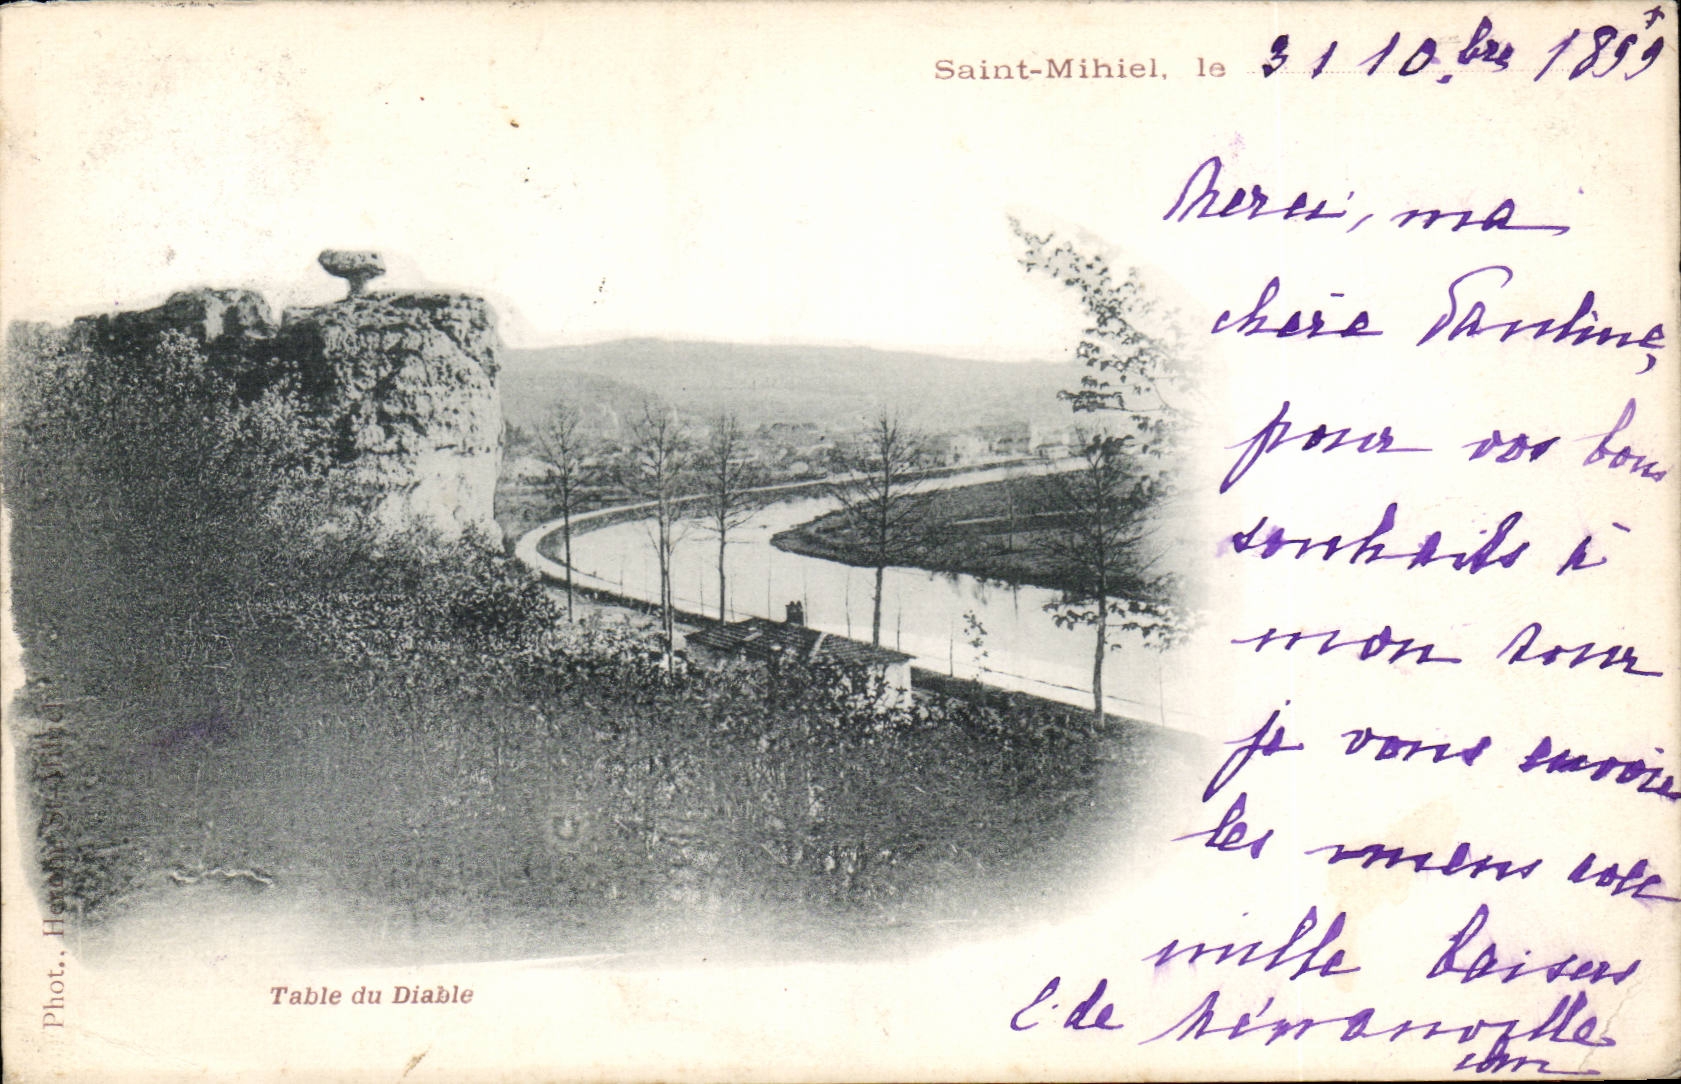 Saint-Mihiel, le 31 10.bre 1899
Merci, ma
chère Pauline,
pour vos bons
souhaits à
mon tour
je vous envoie
les miens avec
mille baisers
de
Table du Diable
Phot.,